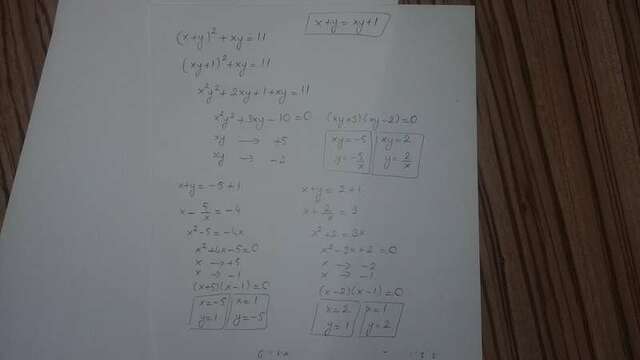 (x+y)² + xy = 11
x+y = xy+1
(xy+1)² + xy = 11
x²y² + 2xy + 1 + xy = 11
x²y² + 3xy - 10 = 0
(xy+5)(xy-2) = 0
xy → +5
xy → -2
xy = -5
y = -5/x
xy = 2
y = 2/x
x+y = -5+1
x - 5/x = -4
x² - 5 = -4x
x² + 4x - 5 = 0
x → +5
x → -1
(x+5)(x-1) = 0
x = -5
y = 1
x = 1
y = -5
x+y = 2+1
x + 2/x = 3
x² + 2 = 3x
x² - 3x + 2 = 0
x → -2
x → -1
(x-2)(x-1) = 0
x = 2
y = 1
x = 1
y = 2